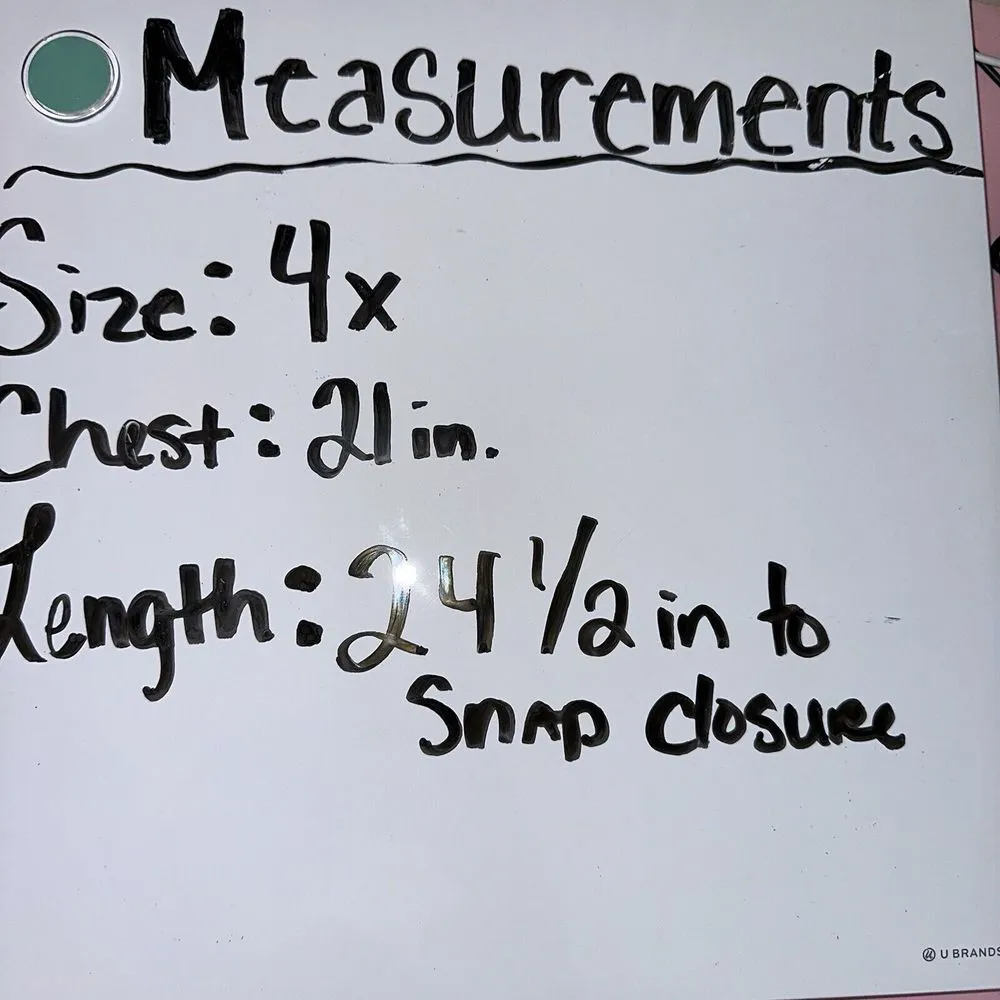 Measurements
Size: 4x
Chest: 21 in.
Length: 24 1/2 in to
Snap closure
U BRANDS